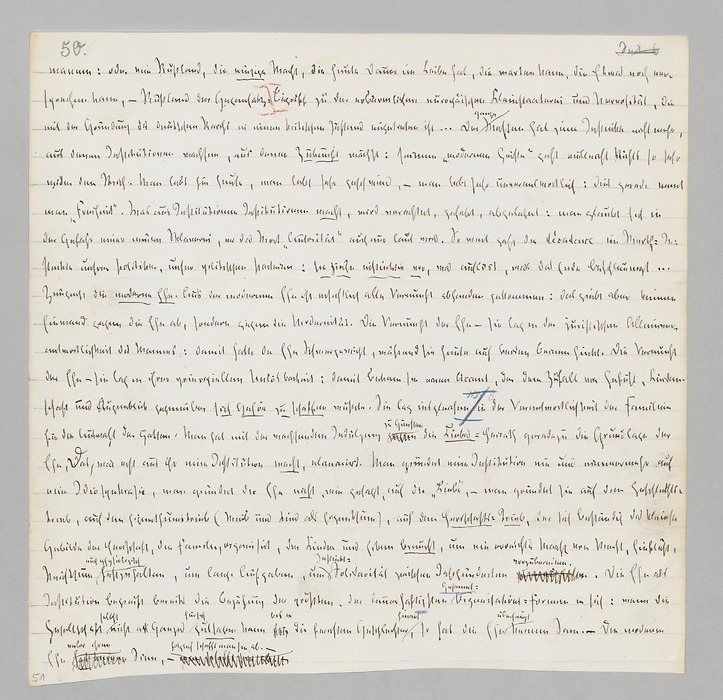 50.
manum: oder wie Rußland, die einzige Macht, die heute Dauer im Leibe hat, die warten kann, die Etwas noch ver-
sprechen kann, – Rußland der Gegensatz-Begriff zu der erbärmlichen europäischen Kleinstaaterei und Nervosität, die
mit der Gründung des deutschen Reichs in einen kritischen Zustand eingetreten ist ... Der ganze Westen hat jene Instinkte nicht mehr,
aus denen Institutionen wachsen, aus denen Zukunft wächst: seinem „modernen Geiste“ geht vielleicht Nichts so sehr
wider den Strich. Man lebt für heute, man lebt sehr geschwind, – man lebt sehr unverantwortlich: dies gerade nennt
man „Freiheit“. Was aus Institutionen Institutionen macht, wird verachtet, gehaßt, abgelehnt: man glaubt sich in
der Gefahr einer neuen Sklaverei, wo das Wort „Autorität“ auch nur laut wird. So weit geht die décadence im Werth-In-
stinkte unsrer Politiker, unsrer politischen Parteien: sie ziehn instinktiv vor, was auflöst, was das Ende beschleunigt ...
Zeugniß die moderne Ehe. Aus der modernen Ehe ist ersichtlich alle Vernunft abhanden gekommen: das giebt aber keinen
Einwand gegen die Ehe ab, sondern gegen die Modernität. Die Vernunft der Ehe – sie lag in der juristischen Alleinver-
antwortlichkeit des Mannes: damit hatte die Ehe Schwergewicht, während sie heute auf beiden Beinen hinkt. Die Vernunft
der Ehe – sie lag in ihrer principiellen Unlösbarkeit: damit bekam sie einen Accent, der dem Zufall von Gefühl, Leiden-
schaft und Augenblick gegenüber sich Gehör zu schaffen wußte. Sie lag insgleichen in der Verantwortlichkeit der Familien
für die Auswahl der Gatten. Man hat mit der wachsenden Indulgenz zu Gunsten der Liebes-Heirath geradezu die Grundlage der
Ehe, Das, was erst aus ihr eine Institution macht, eliminirt. Man gründet eine Institution nie und nimmermehr auf
eine Idiosynkrasie, man gründet die Ehe nicht, wie gesagt, auf die „Liebe“, – man gründet sie auf den Geschlechts-
trieb, auf den Eigenthumstrieb (Weib und Kind als Eigenthum), auf den Herrschafts-Trieb, der sich beständig das kleinste
Gebilde der Herrschaft, die Familie, organisirt, der Kinder und Erben braucht, um ein erreichtes Maaß von Macht, Einfluß,
Reichthum auch physiologisch festzuhalten, um lange Aufgaben, um Instinkt-Solidarität zwischen Jahrhunderten vorzubereiten. Die Ehe als
Institution begreift bereits die Bejahung der größten, der dauerhaftesten Organisations-Formen in sich: wenn die
Gesellschaft selbst nicht als Ganzes
Ehe
51